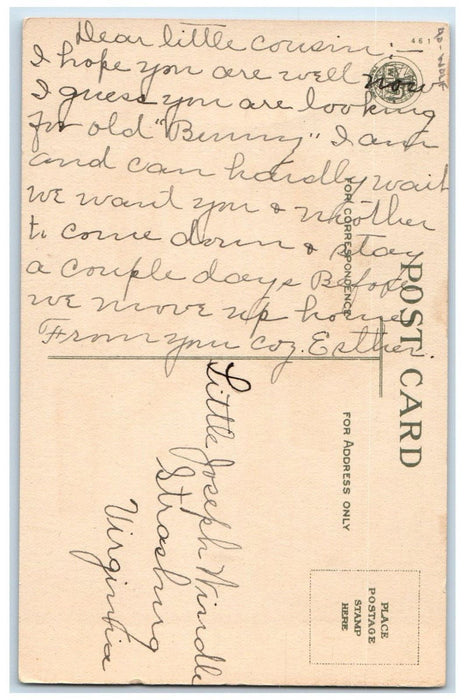 Dear little cousin:—
I hope you are well now
I guess you are looking
for old "Bunny" I am
and can hardly wait
we want you & Mother
to come down & stay
a couple days Before
we move up home
From you coz. Esther.
461
POST CARD
FOR CORRESPONDENCE
FOR ADDRESS ONLY
PLACE
POSTAGE
STAMP
HERE
Little Joseph Windle
Strasburg
Virginia